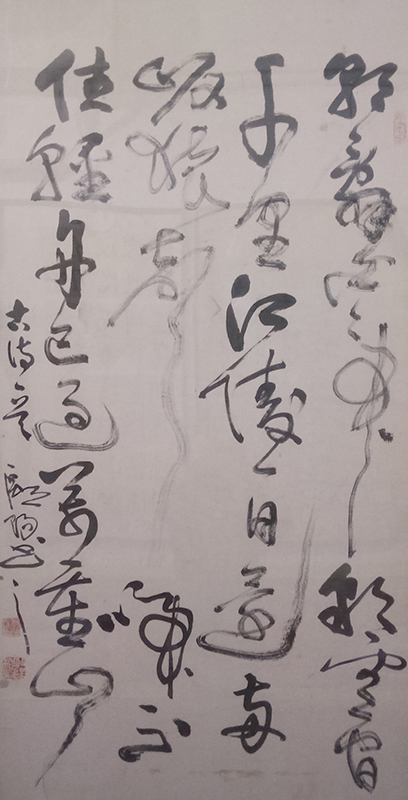 朝辭白帝彩雲間
千里江陵一日還兩
岸猿聲啼不
住輕舟已過萬重山
古诗